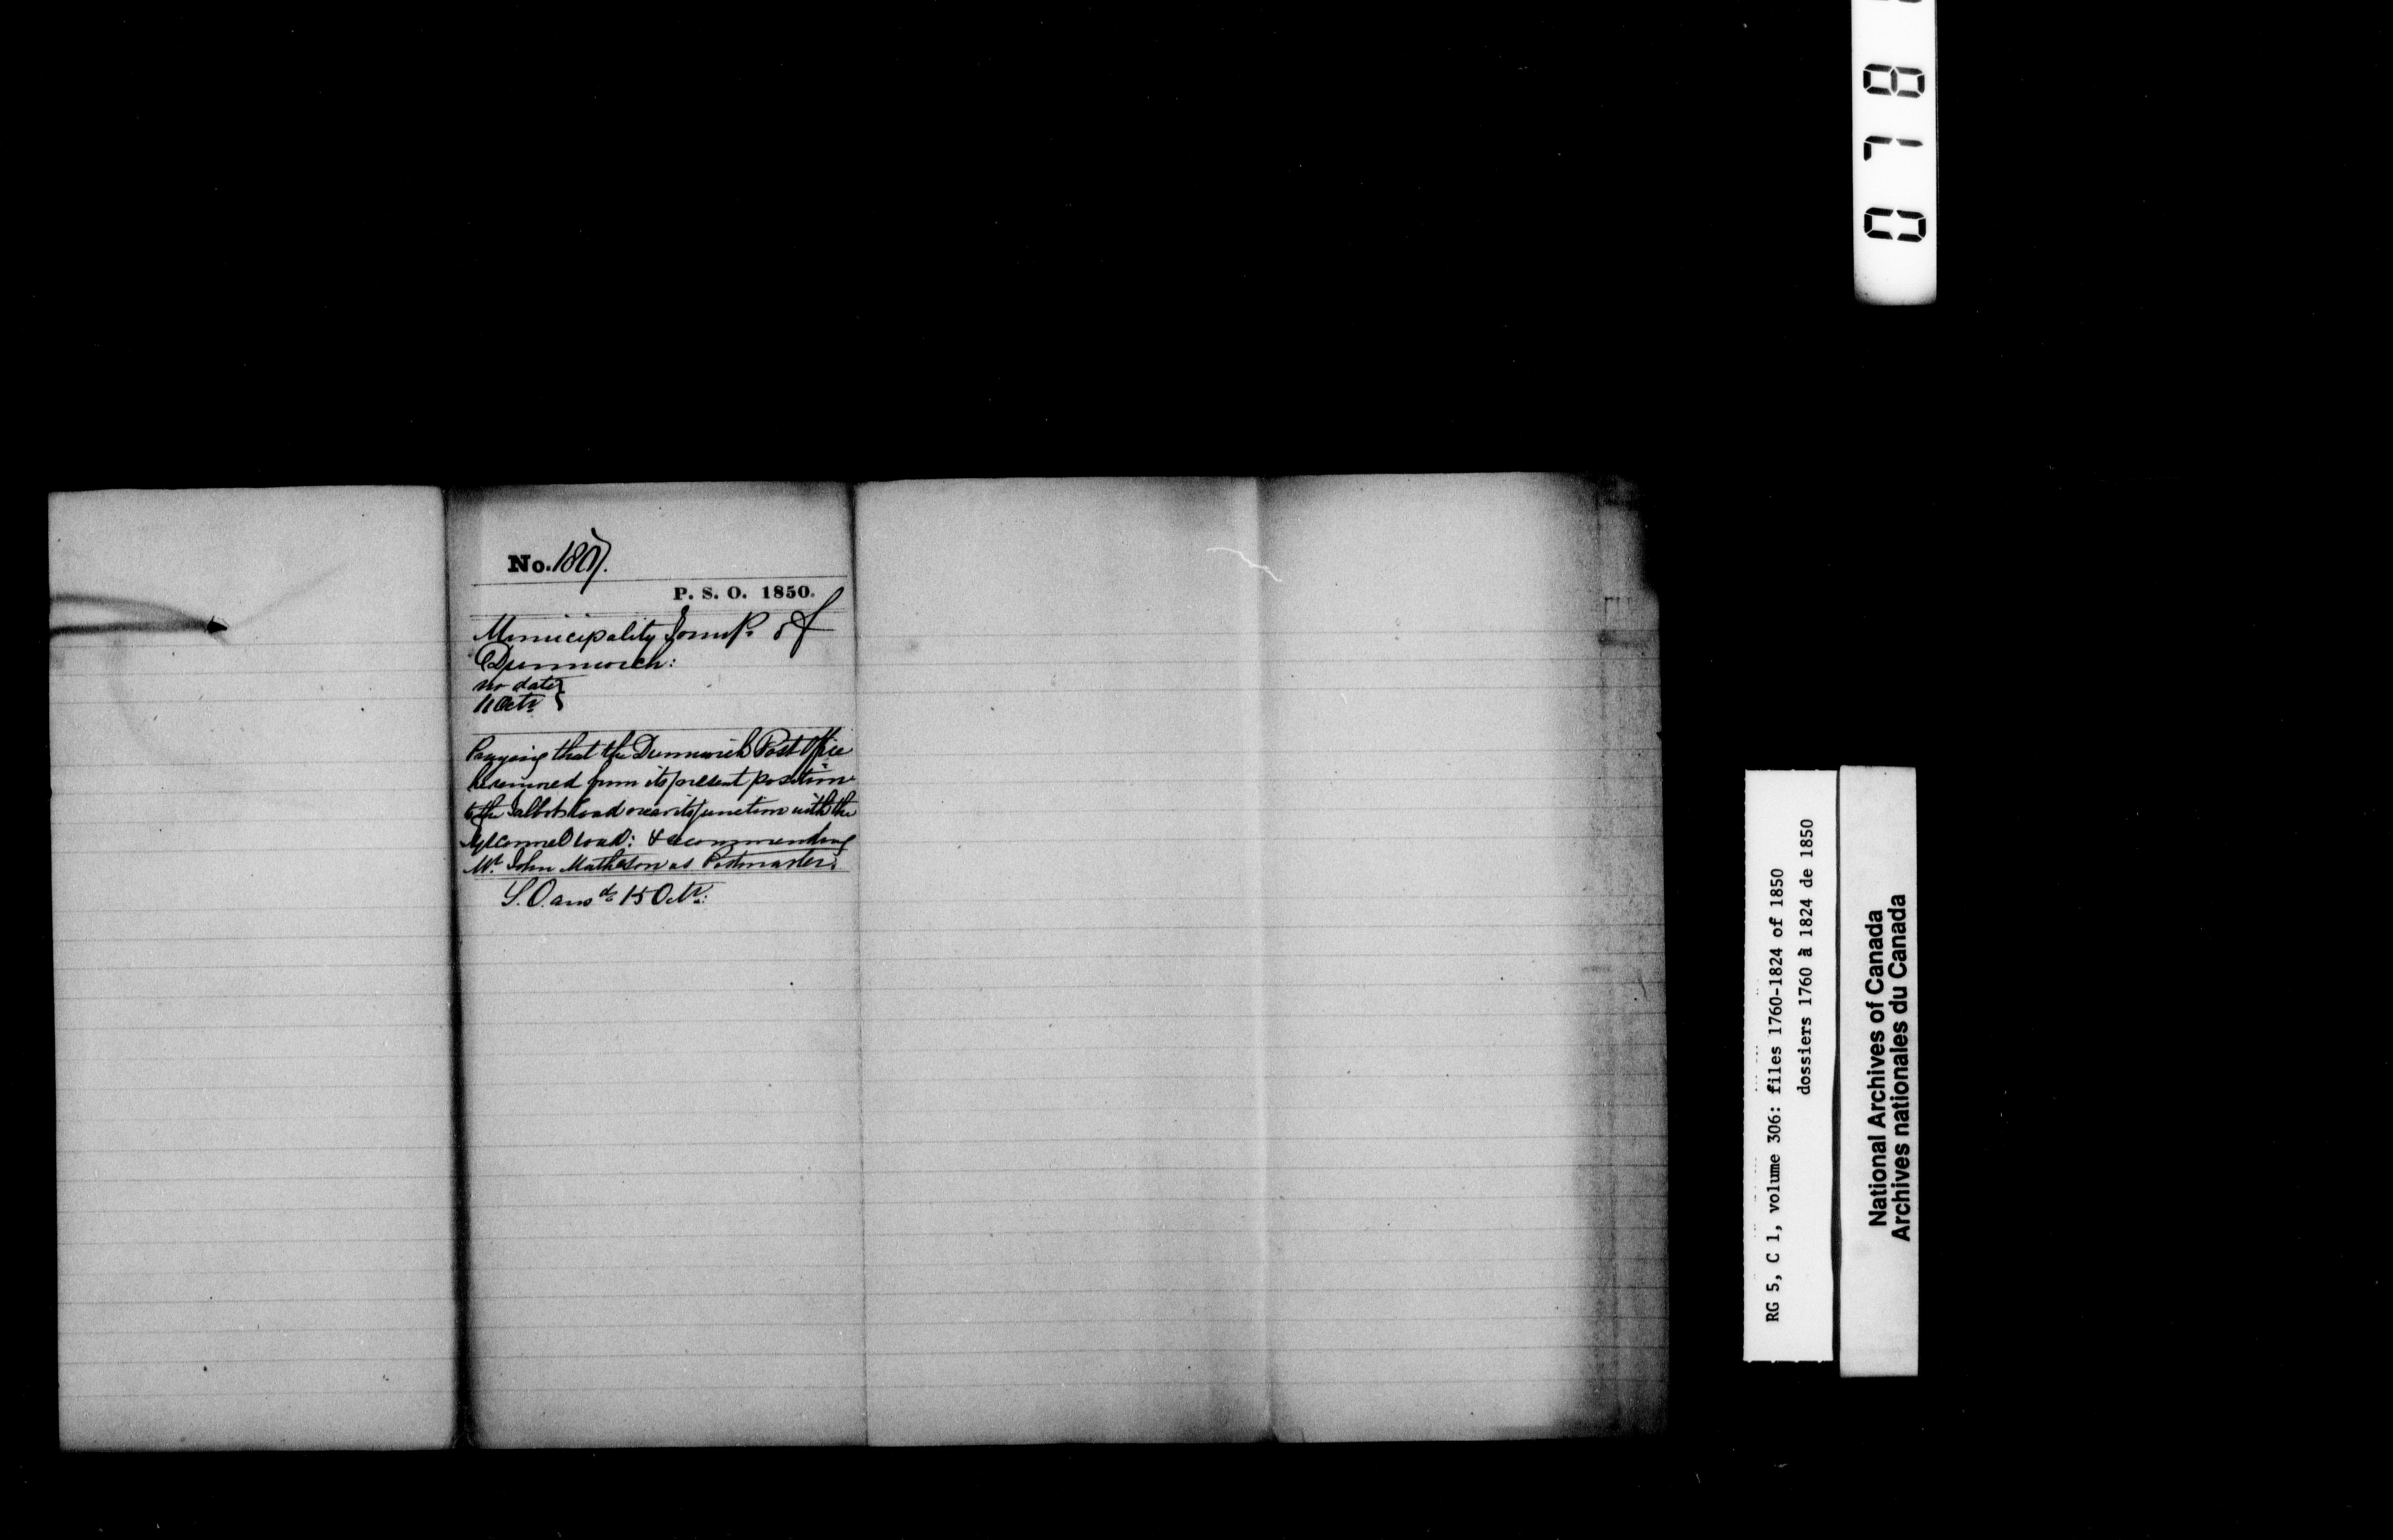 No. 1807.
P. S. O. 1850.
Municipality Townsp. of
Dunnwich:
no date
11 Octr
Praying that the Dunnwich Post Office
be removed from its present position
to the Talbot Road near its junction with the
road: & recommending
Mr. John Matheson as Postmaster.
L.O. ansd 15 Octr:
078
RG 5, C 1, volume 306: files 1760-1824 of 1850
dossiers 1760 à 1824 de 1850
National Archives of Canada
Archives nationales du Canada